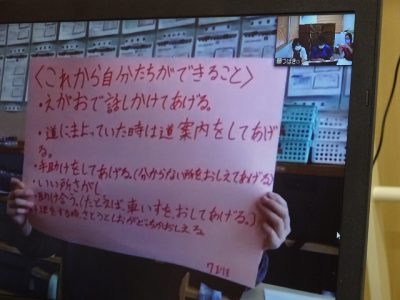 〈これから自分たちができること〉
・えがおで話しかけてあげる。
・道にまよっていた時は道案内をしてあげ
る。
・手助けをしてあげる。(分からない所をおしえてあげる)
・いい所さがし
・助け合う。(たとえば、車いすをおしてあげる。)
する時、さとうとしおがどっちかおしえる